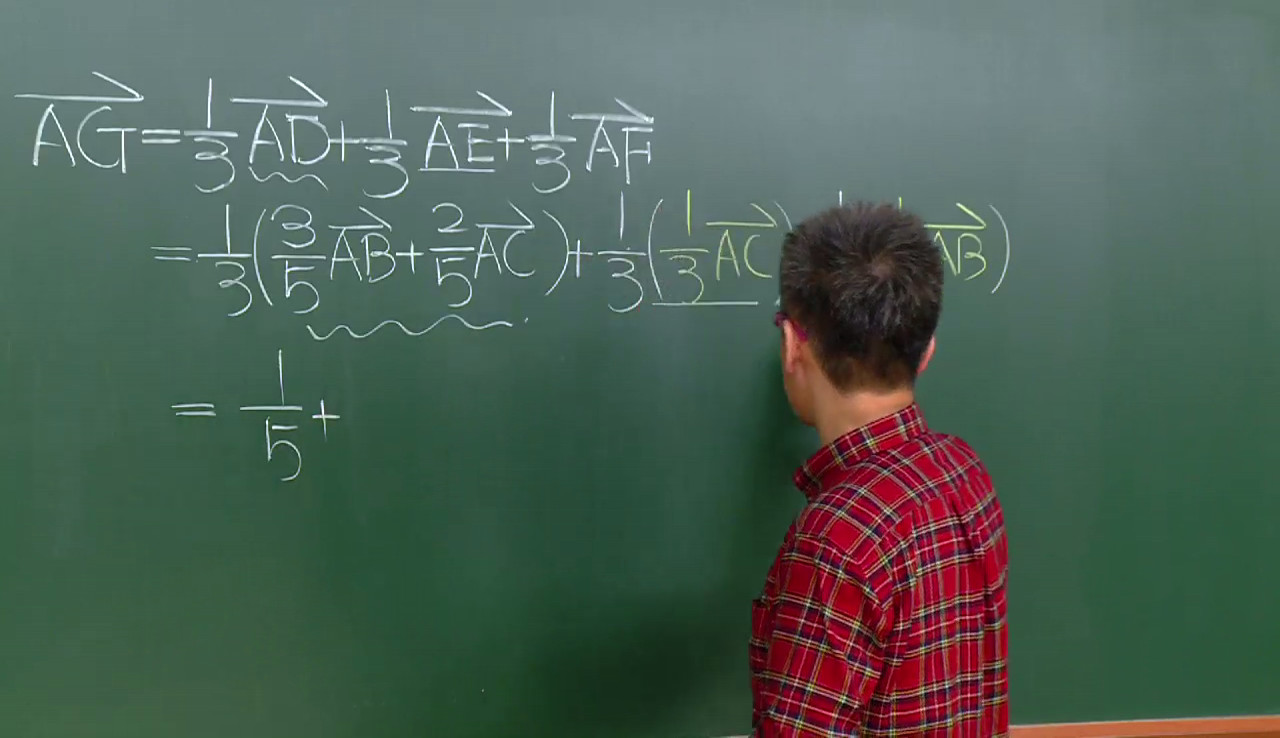 AG⃗ = 1/3 AD⃗ + 1/3 AE⃗ + 1/3 AF⃗
= 1/3 ( 3/5 AB⃗ + 2/5 AC⃗ ) + 1/3 ( 1/3 AC⃗ ) AB⃗ )
= 1/5 +